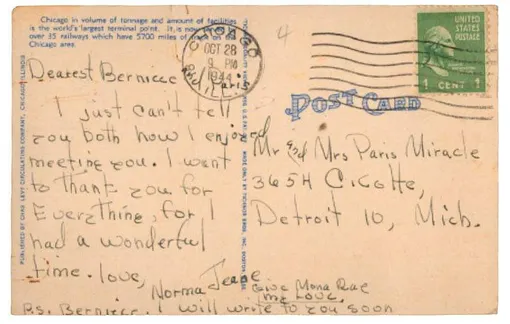 Chicago in volume of tonnage and amount of facilities
is the world's largest terminal point. It is now
over 35 railways which have 5700 miles of the
Chicago area.
4
CHICAGO
OCT 28
9 PM
1944
ILL.
UNITED
STATES
POSTAGE
1 CENT 1
POST CARD
Dearest Bernicec & Paris
I just can't tell
you both how I enjoyed
meeting you. I want
to thank you for
Everything, for I
had a wonderful
time. love,
Norma Jeane
P.S. Bernicec. I will write to you soon
Give Mona Rae
my Love.
Mr and Mrs Paris Miracle
3654 Cicotte,
Detroit 10, Mich.
PUBLISHED BY CHAS. LEVY CIRCULATING COMPANY, CHICAGO, ILLINOIS
MADE ONLY BY TICHNOR BROS. INC., BOSTON, MASS.